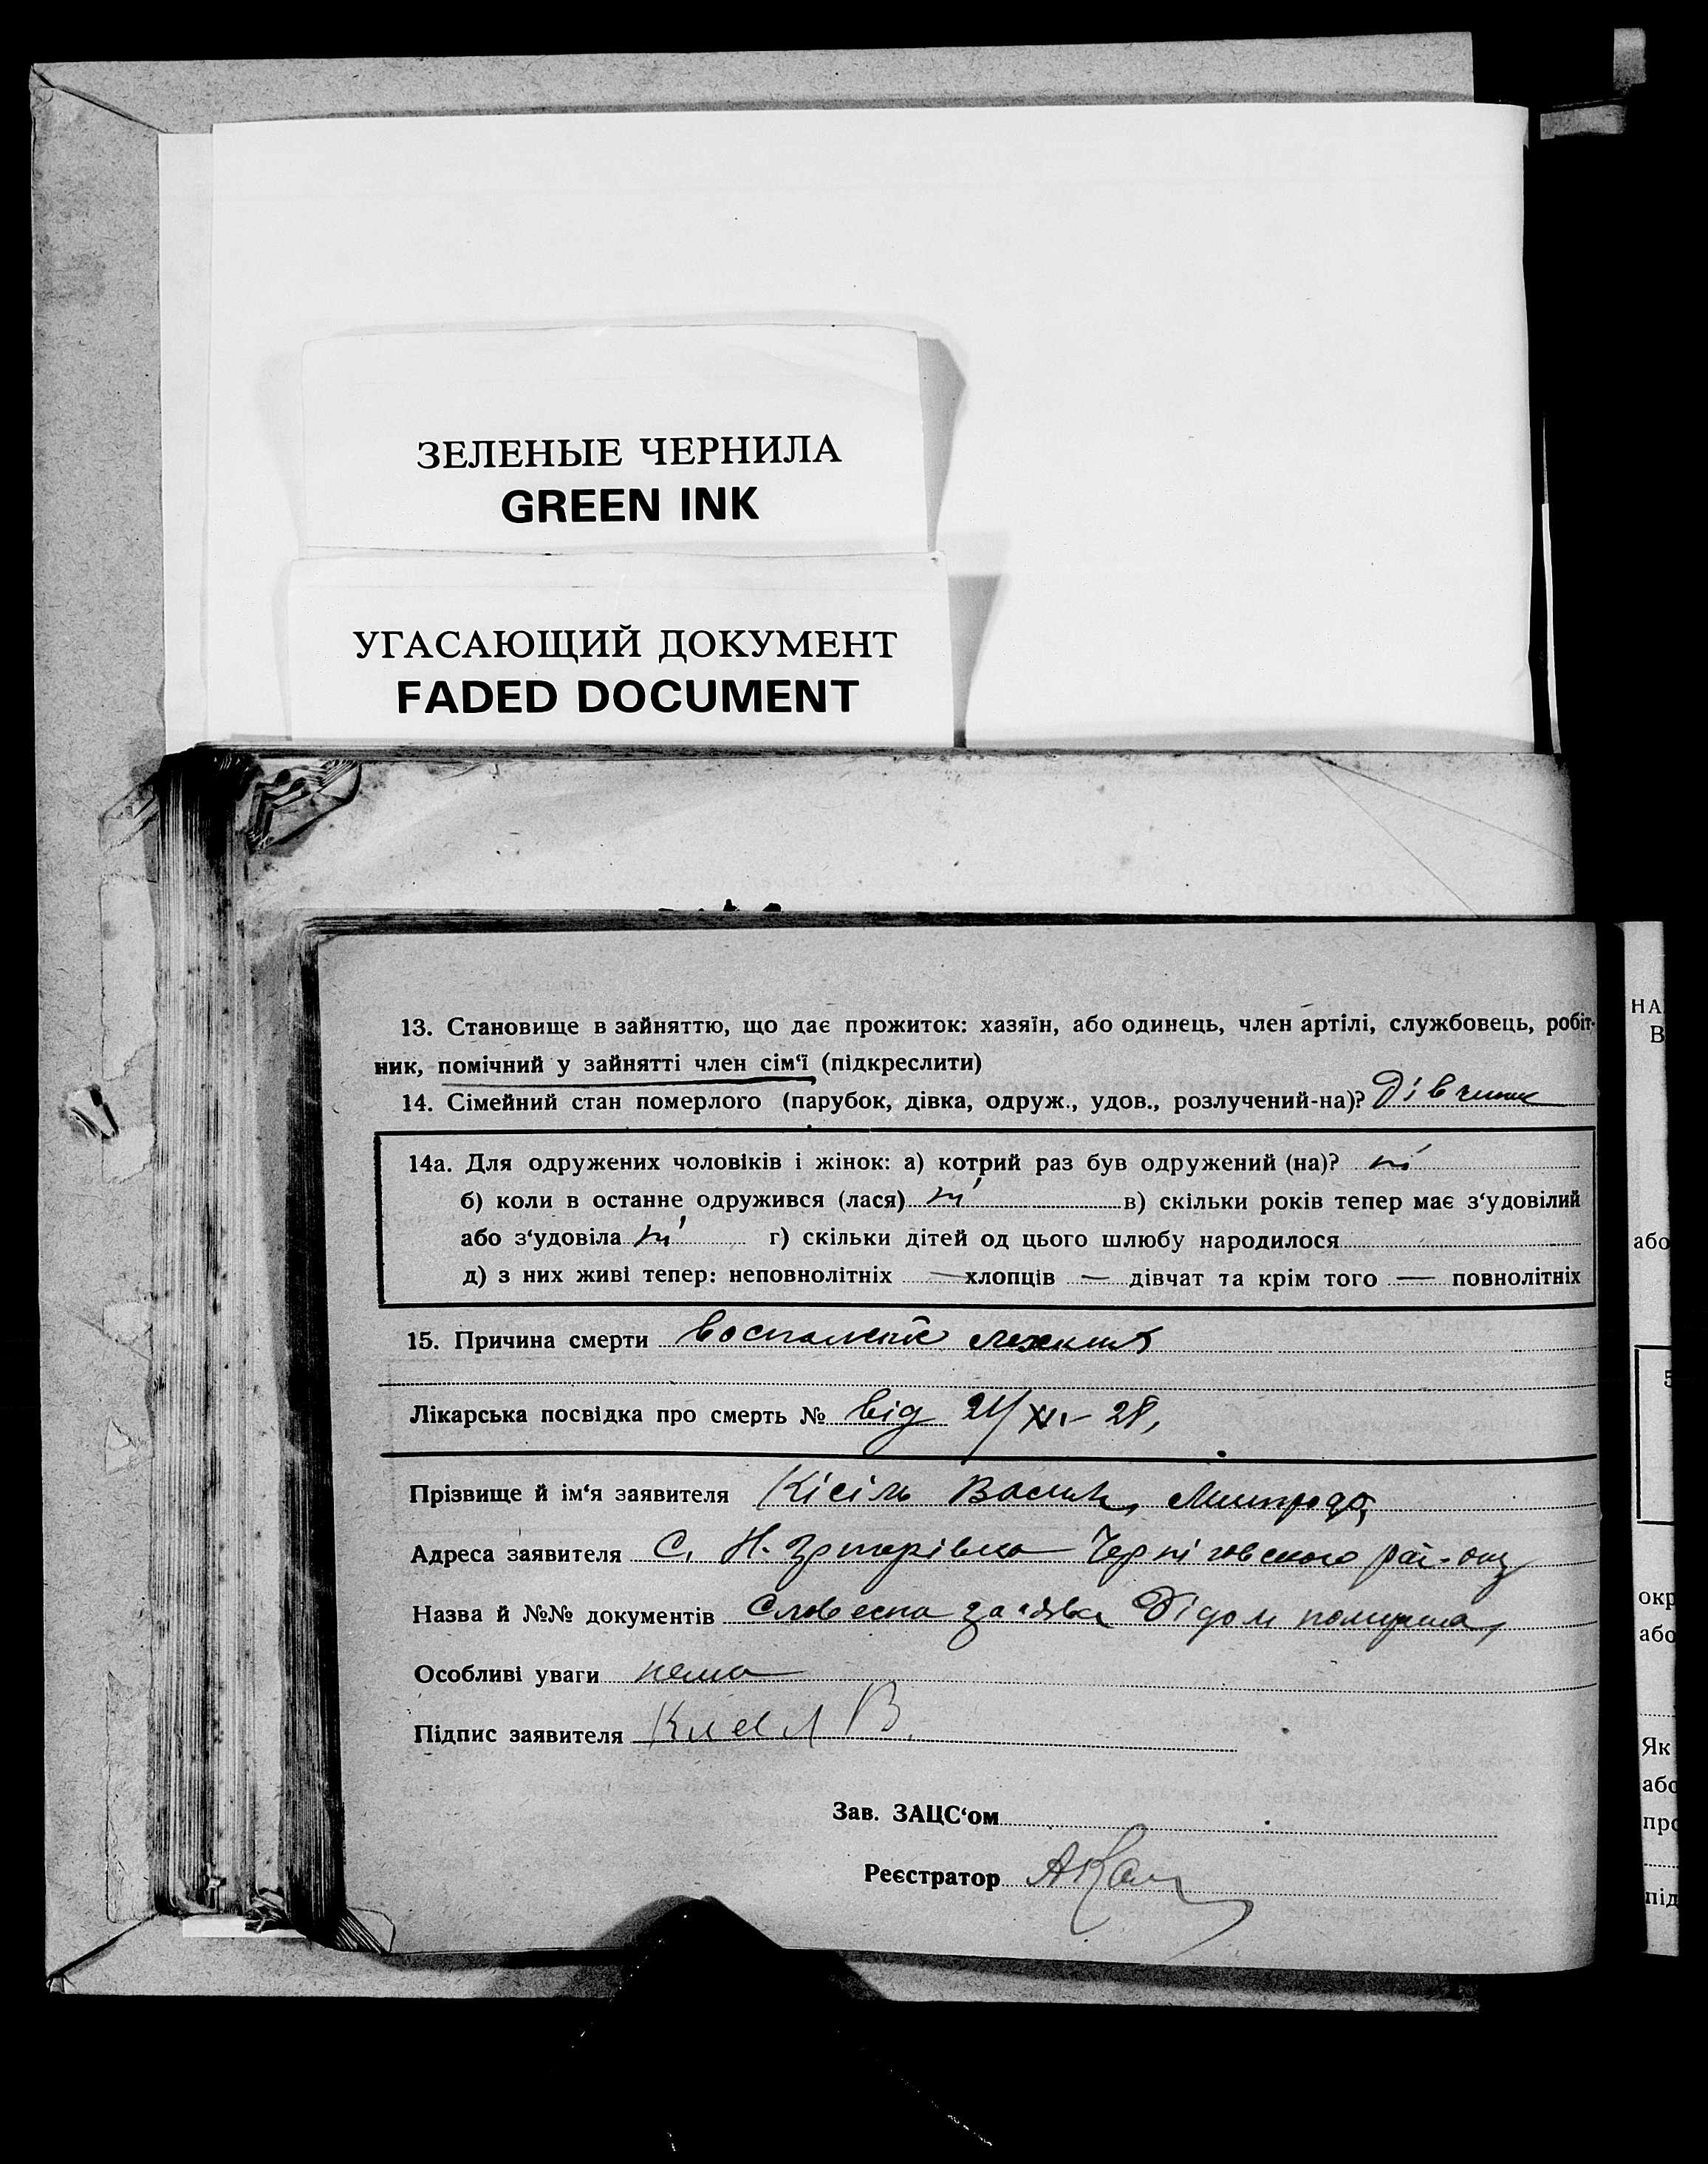 ЗЕЛЕНЫЕ ЧЕРНИЛА
GREEN INK
УГАСАЮЩИЙ ДОКУМЕНТ
FADED DOCUMENT
13. Становище в зайняттю, що дає прожиток: хазяїн, або одинець, член артілі, службовець, робіт-
ник, помічний у зайнятті член сім‘ї (підкреслити)
14. Сімейний стан померлого (парубок, дівка, одруж., удов., розлучений-на)? Дівчина
14а. Для одружених чоловіків і жінок: а) котрий раз був одружений (на)? ні
б) коли в останнє одружився (лася) ні в) скільки років тепер має з‘удовілий
або з‘удовіла ні г) скільки дітей од цього шлюбу народилося
д) з них живі тепер: неповнолітніх — хлопців — дівчат та крім того — повнолітніх
15. Причина смерти
Лікарська посвідка про смерть № від XI - 28,
Прізвище й ім‘я заявителя Кісіль
Адреса заявителя С. Черніговського рай-ону
Назва й №№ документів Словесна заява Дідом
Особливі уваги нема
Підпис заявителя В.
Зав. ЗАЦС‘ом
Реєстратор
НА
В
або
5
окр
або
Як
або
про
під